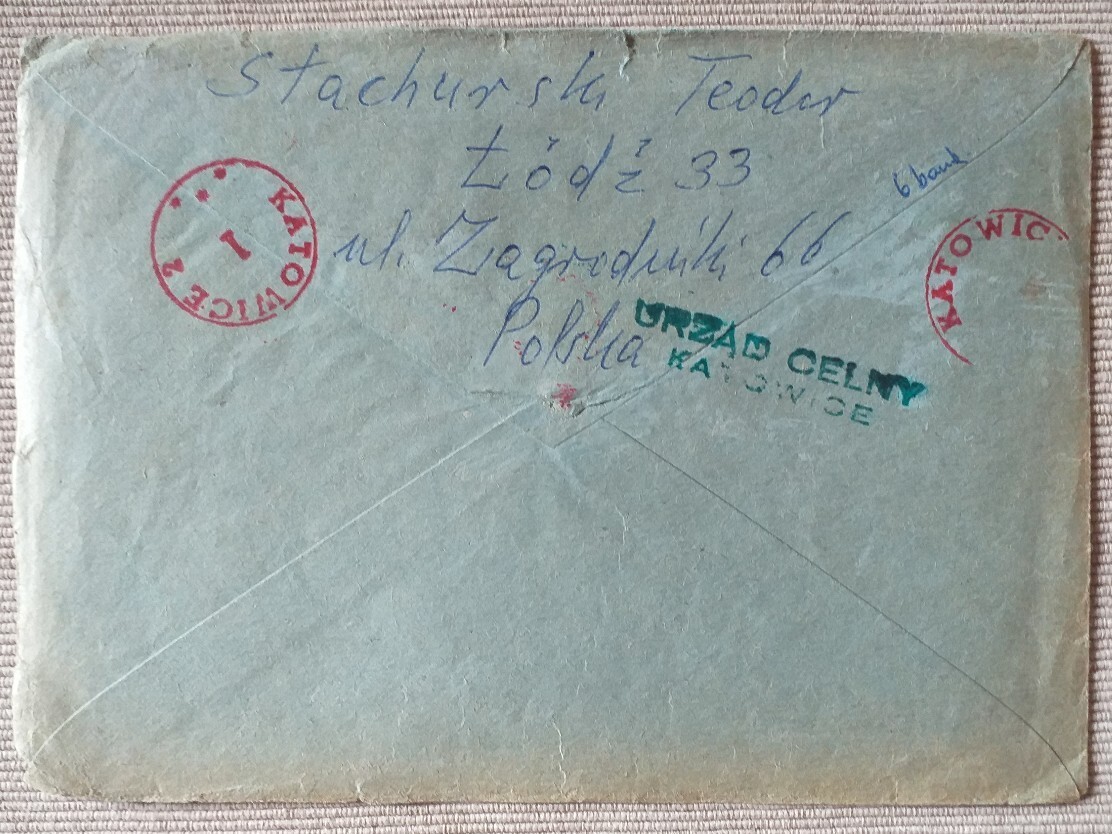 Stachurski Teodor
Łódź 33
ul. Zagrodniki 66
Polska
6 band.
KATOWICE 2
1
KATOWIC
URZĄD CELNY
KATOWICE